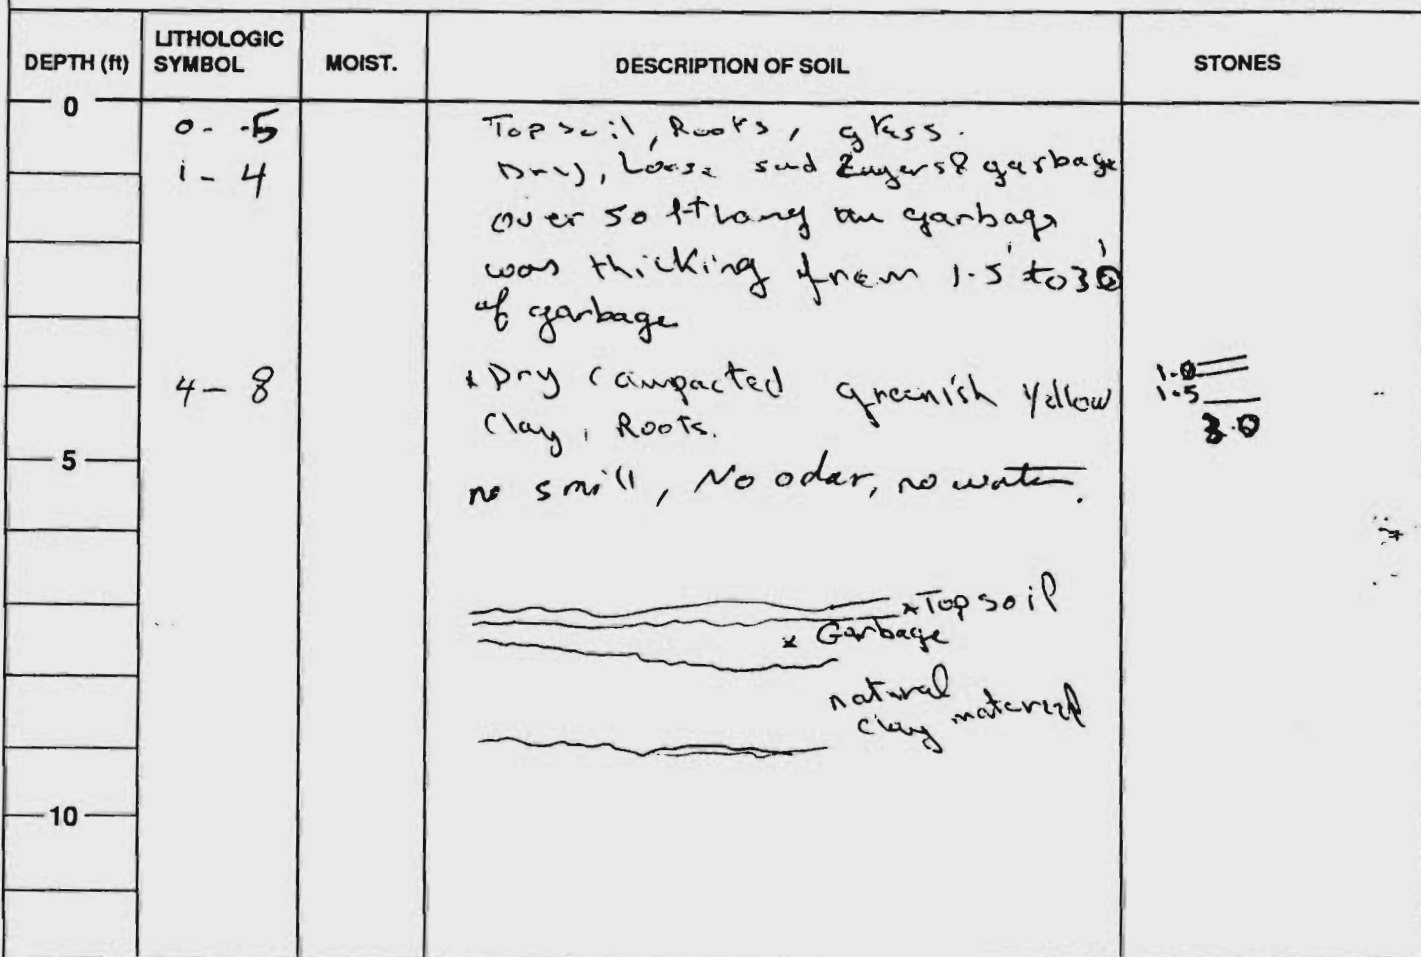 DEPTH (ft) LITHOLOGIC SYMBOL MOIST. DESCRIPTION OF SOIL STONES
0
0 - .5 Topsoil, Roots, grass.
1 - 4 Dry, Loose garbage
over garbage
was thicking from 1.5' to 3.0'
of garbage
4 - 8 * Dry Compacted greenish Yellow 1.0
Clay, Roots. 1.5
3.0
5
no smill, No odar, no water.
* Topsoil
* Garbage
natural
clay material
10